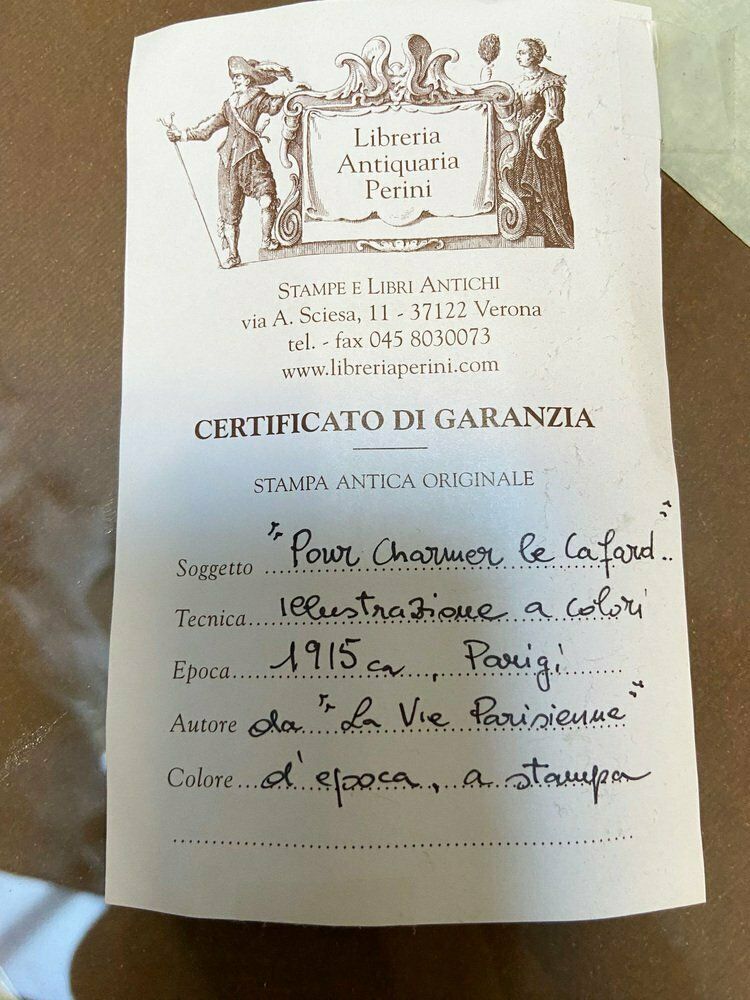 Libreria
Antiquaria
Perini
STAMPE E LIBRI ANTICHI
via A. Sciesa, 11 - 37122 Verona
tel. - fax 045 8030073
www.libreriaperini.com
CERTIFICATO DI GARANZIA
STAMPA ANTICA ORIGINALE
Soggetto "Pour Charmer le Cafard.."
Tecnica illustrazione a colori
Epoca 1915 ca, Parigi
Autore da "La Vie Parisienne"
Colore d'epoca, a stampa